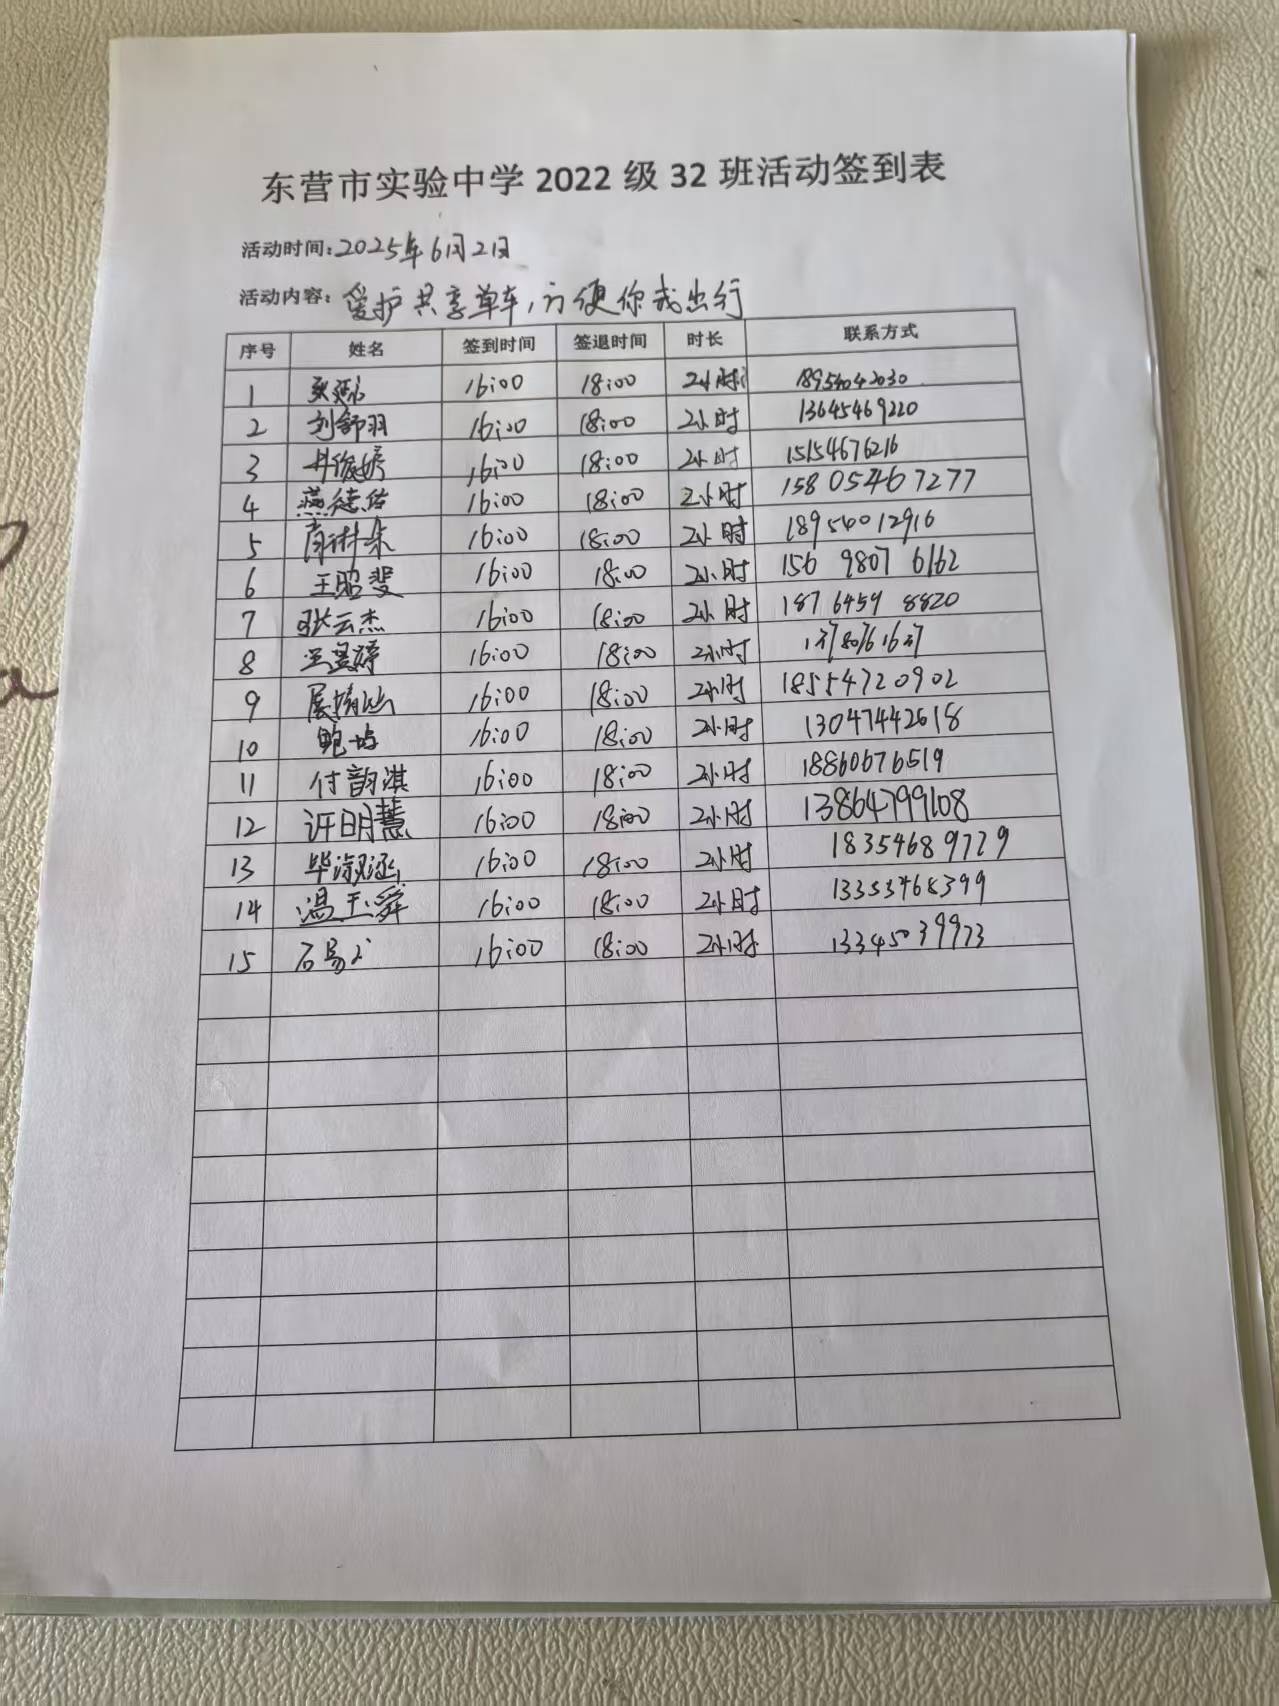 东营市实验中学 2022 级 32 班活动签到表
活动时间：2025年6月2日
活动内容：爱护共享单车，方便你我出行
序号 姓名 签到时间 签退时间 时长 联系方式
1 16:00 18:00 2小时 18954042030
2 刘舒羽 16:00 18:00 2小时 13645469220
3 16:00 18:00 2小时 15154676216
4 16:00 18:00 2小时 15805467277
5 16:00 18:00 2小时 18954012916
6 王昭斐 16:00 18:00 2小时 156 9807 6162
7 张云杰 16:00 18:00 2小时 187 6459 8820
8 16:00 18:00 2小时
9 展楠汕 16:00 18:00 2小时 18554720902
10 鲍 16:00 18:00 2小时 13047442618
11 付韵淇 16:00 18:00 2小时 18860676519
12 许明慧 16:00 18:00 2小时 13864799108
13 毕淑涵 16:00 18:00 2小时 18354689729
14 温玉舜 16:00 18:00 2小时 13353468399
15 石易 16:00 18:00 2小时 13345039973